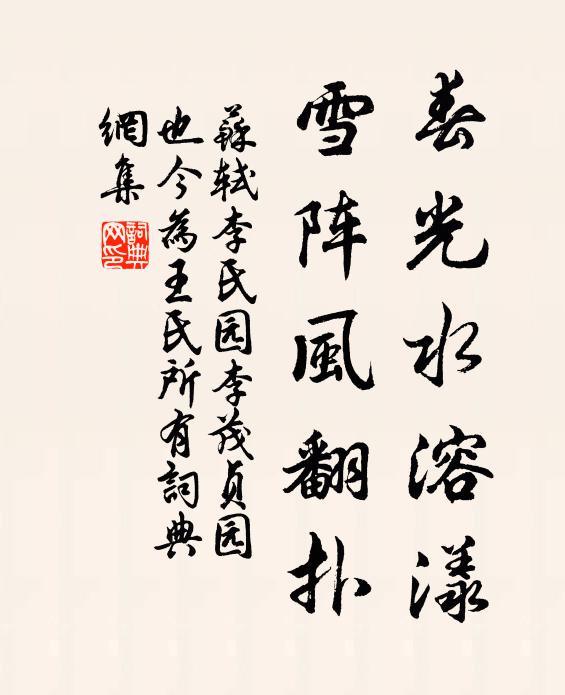 春光水溶漾
雪阵風翻扑
蘇轼李氏园李茂贞园
也今為王氏所有詞典
網集
詞典
网印